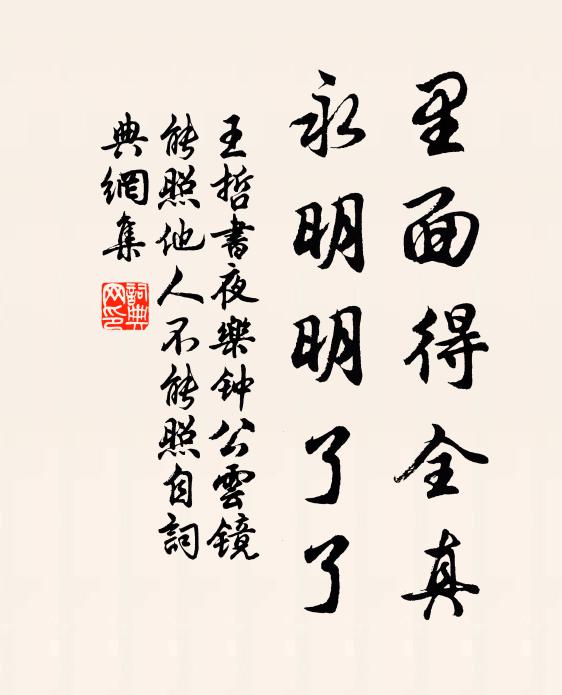 里面得全真
永明明了了
王哲書夜樂钟公雲鏡
能照他人不能照自詞
典網集
詞典
网印